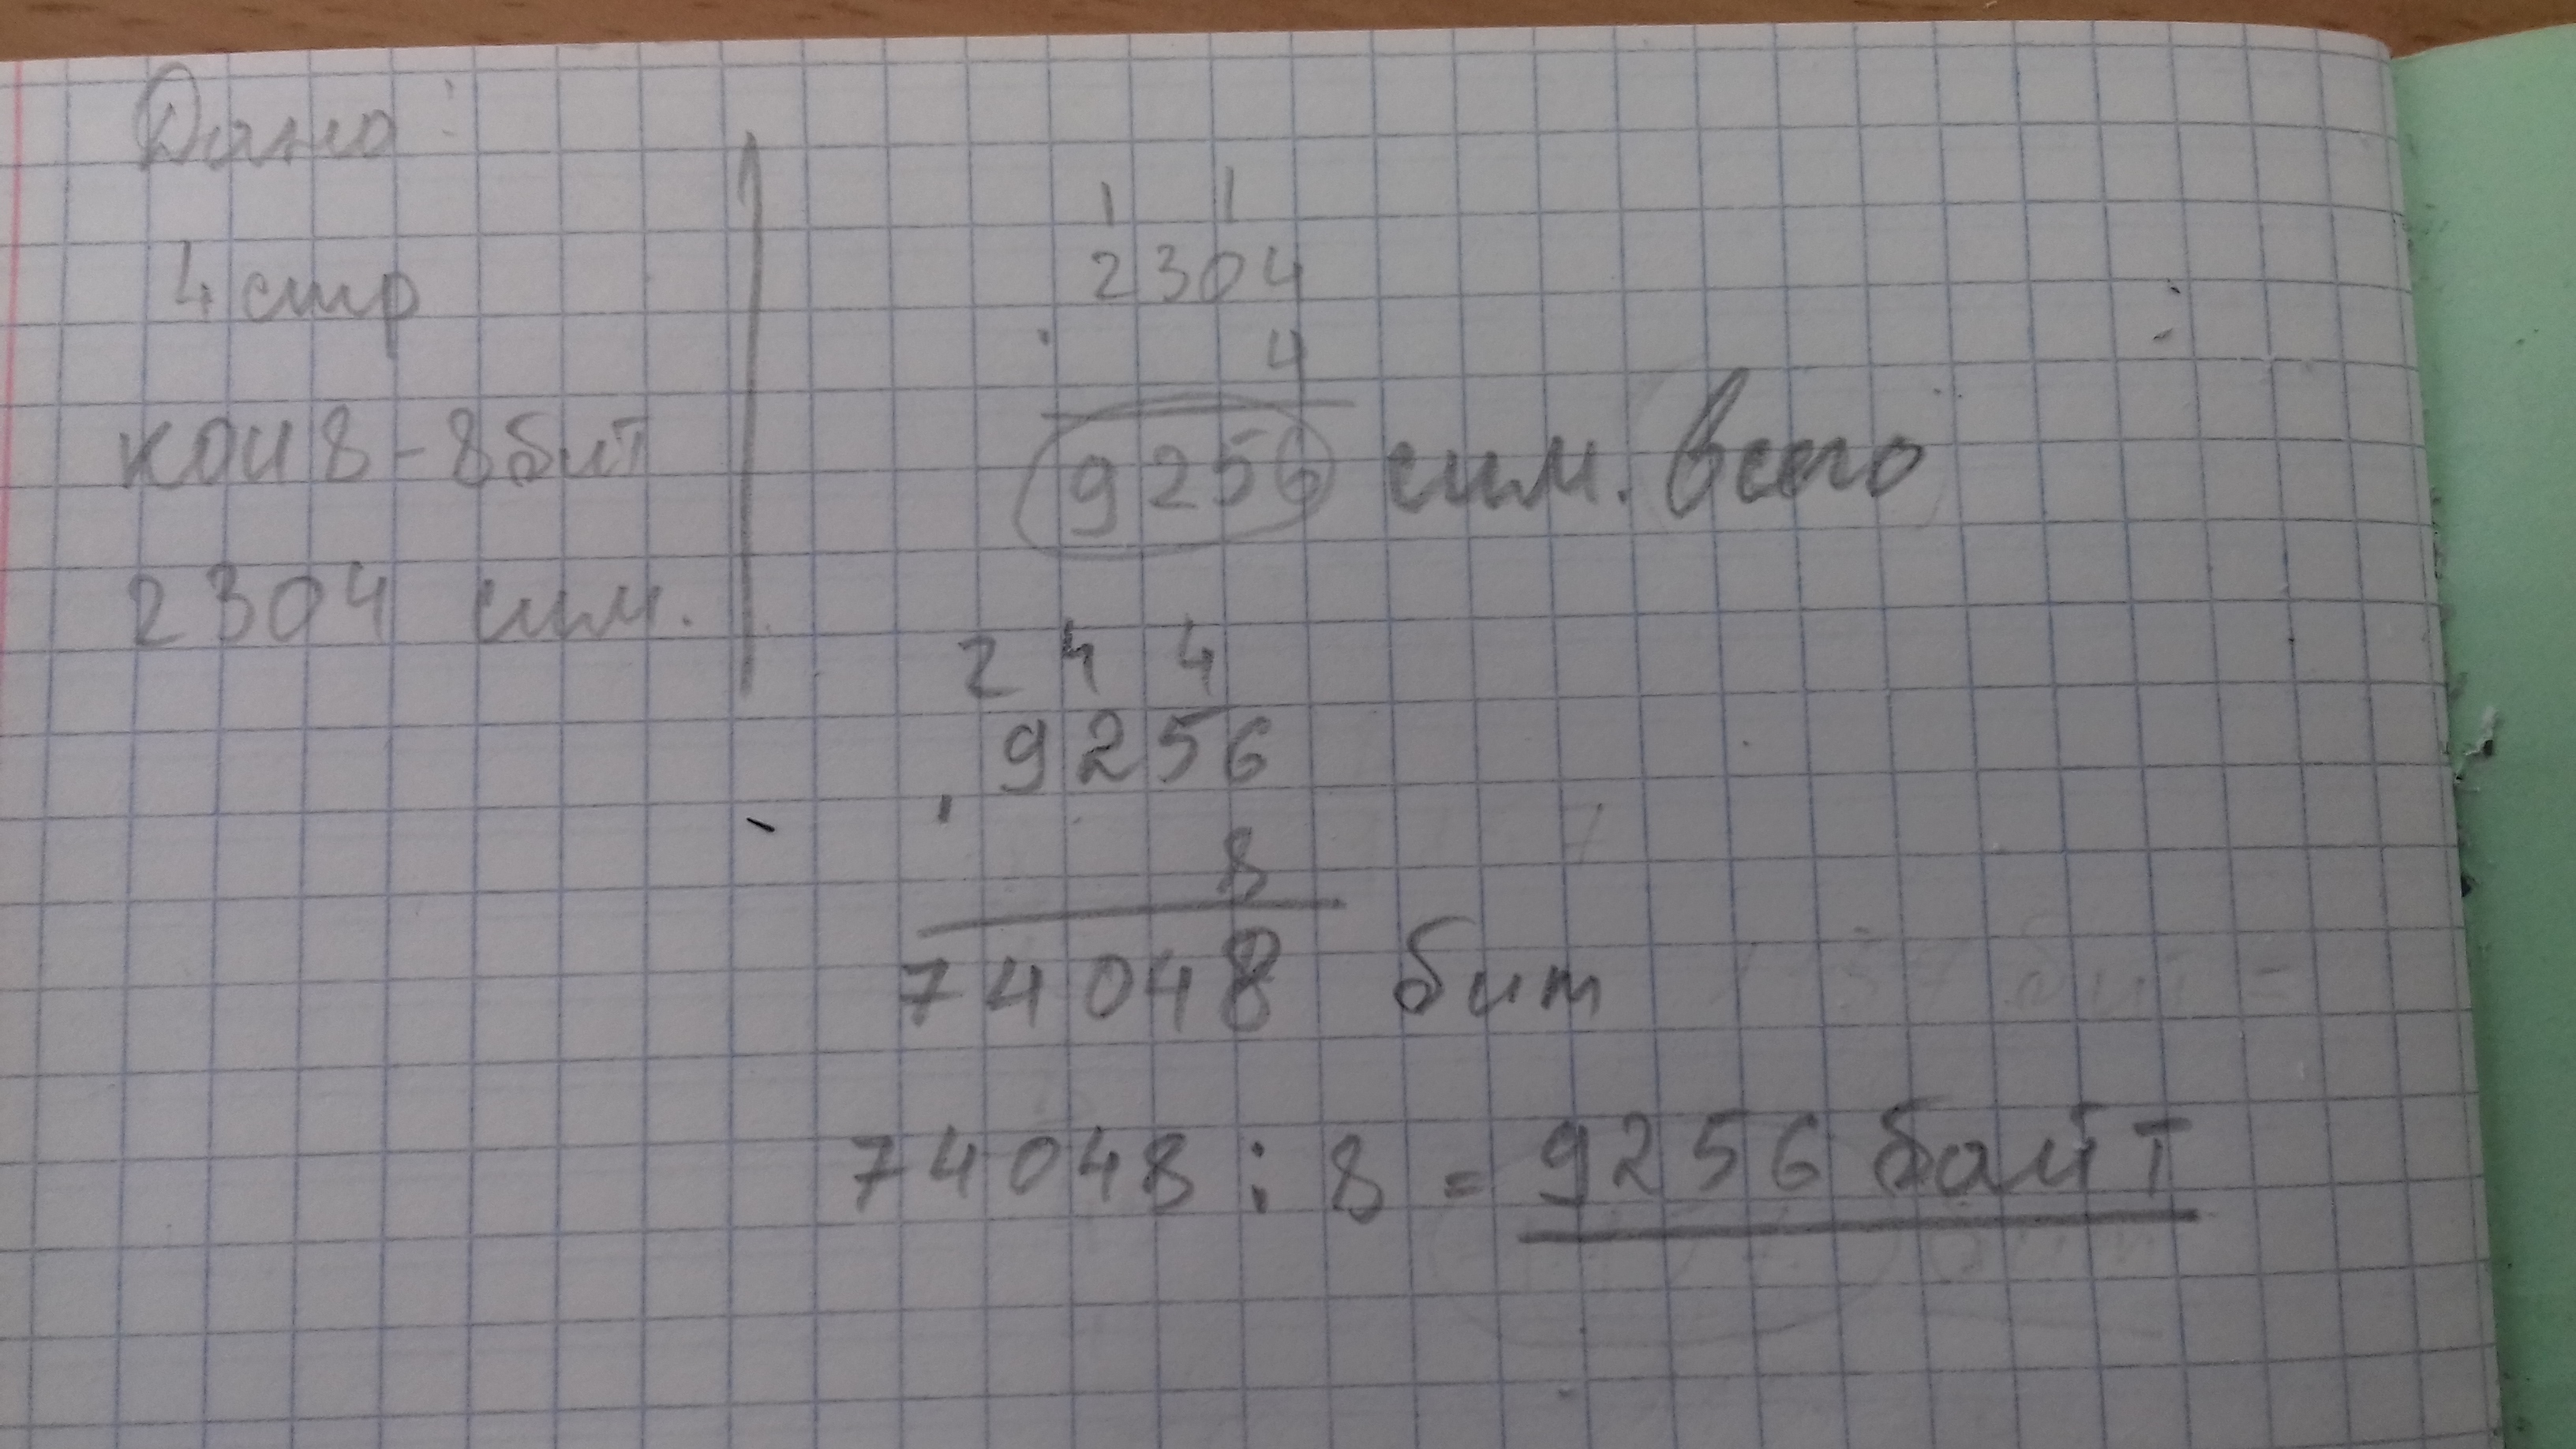 Дано:
4 стр
КОИ 8 - 8 бит
2304 сим.
1 1
2304
· 4
9256 сим. всего
2 4 4
9256
· 8
74048 бит
74048 : 8 = 9256 байт